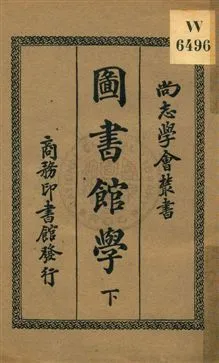 W
6496
尚志學會叢書
圖書館學
下
商務印書館發行